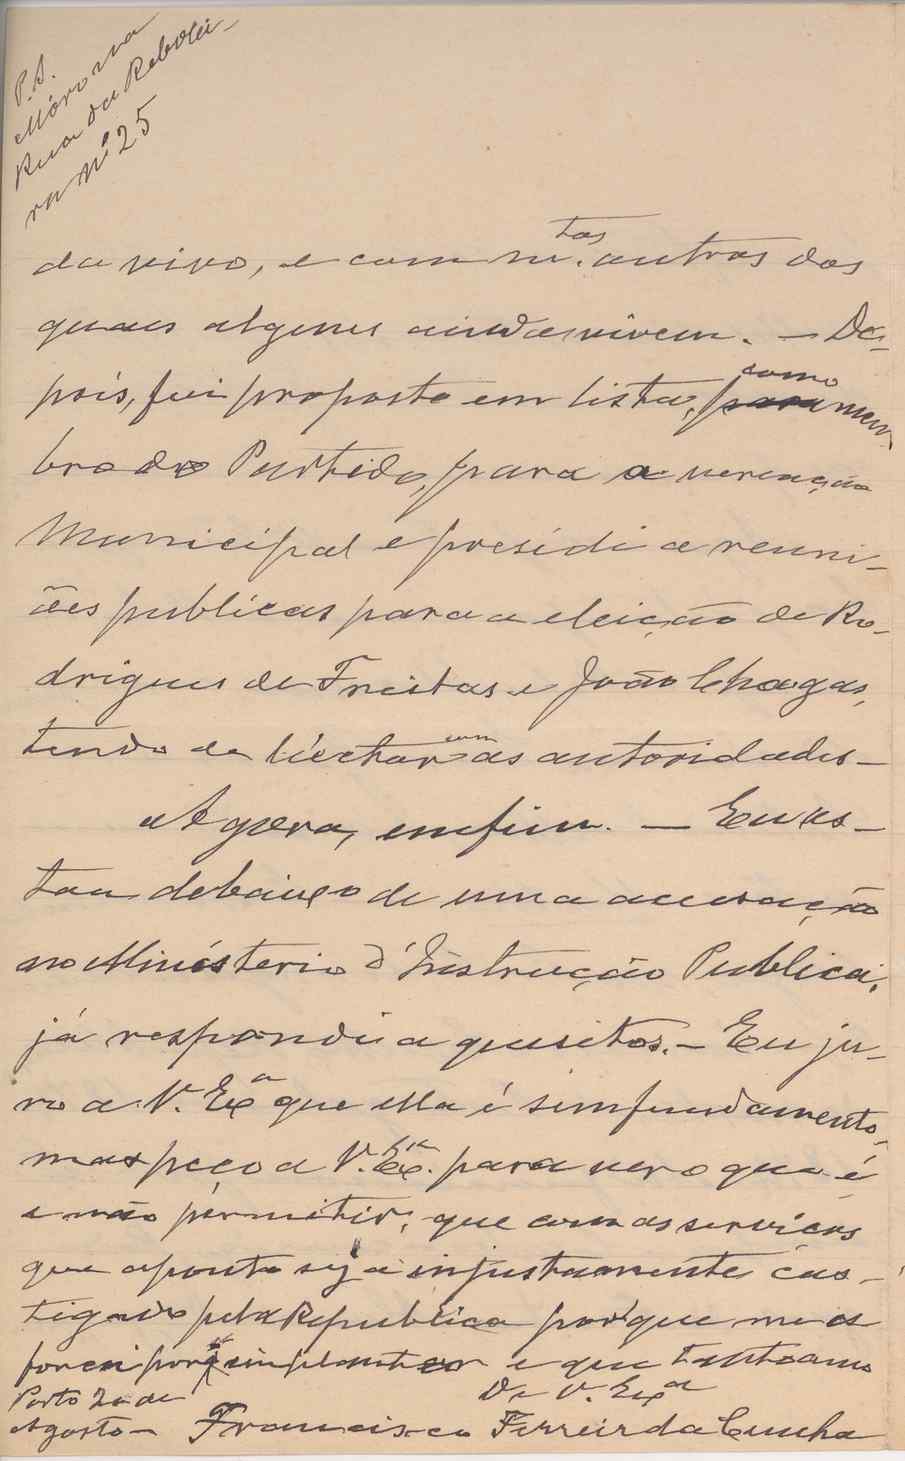 P.S.
Móro na
Rua da Rebolei-
ra Nº 25
da vivo, e com m.tos outros dos
quaes alguns ainda vivem. — De-
pois, fui proposto em lista, como mem-
bro do Partido, para a vereação
Municipal e presidi a reuni-
ões publicas para a eleição de Ro-
drigues de Freitas e João Chagas,
tendo de luctar com as autoridades —
Agora, emfim. — Eu es-
tou debaixo de uma acusação
no Ministerio d'Instrução Publica,
já respondi a quesitos. — Eu ju-
ro a V. Exª que ella é sem fundamento,
mas peço a V. Exª para ver o que é
e não permitir, que com os serviços
que aponto seja injustamente cas-
tigado pela Republica por que me es
forcei por implantar e que tanto amo
De V. Exª
Porto 20 de
Agosto — Francisco Ferreira da Cunha